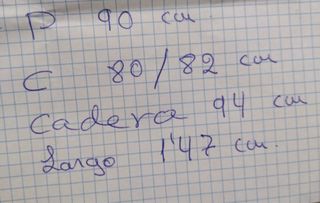 P 90 cm
C 80/82 cm
Cadera 94 cm
Largo 1'47 cm.